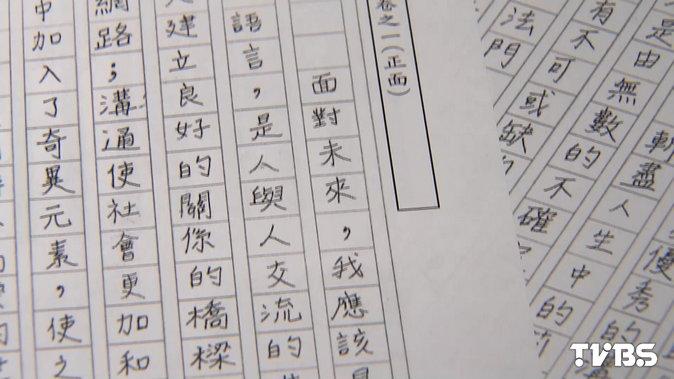 優秀的
盡人生中的
是由無數的不確
有不可或缺
法門
卷之一(正面)
面對未來，我應該
語言，是人與人交流的
建立良好的關你的橋樑
網路；溝通使社會更加和
中加入了奇異元素，使之
TVBS